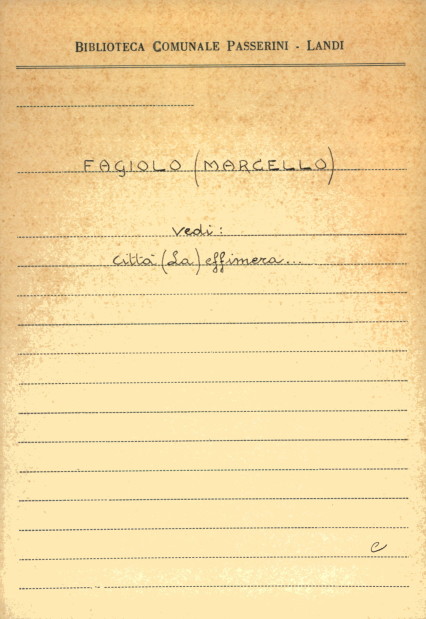 BIBLIOTECA COMUNALE PASSERINI - LANDI
FAGIOLO (MARCELLO)
vedi:
Città (La) effimera...
C